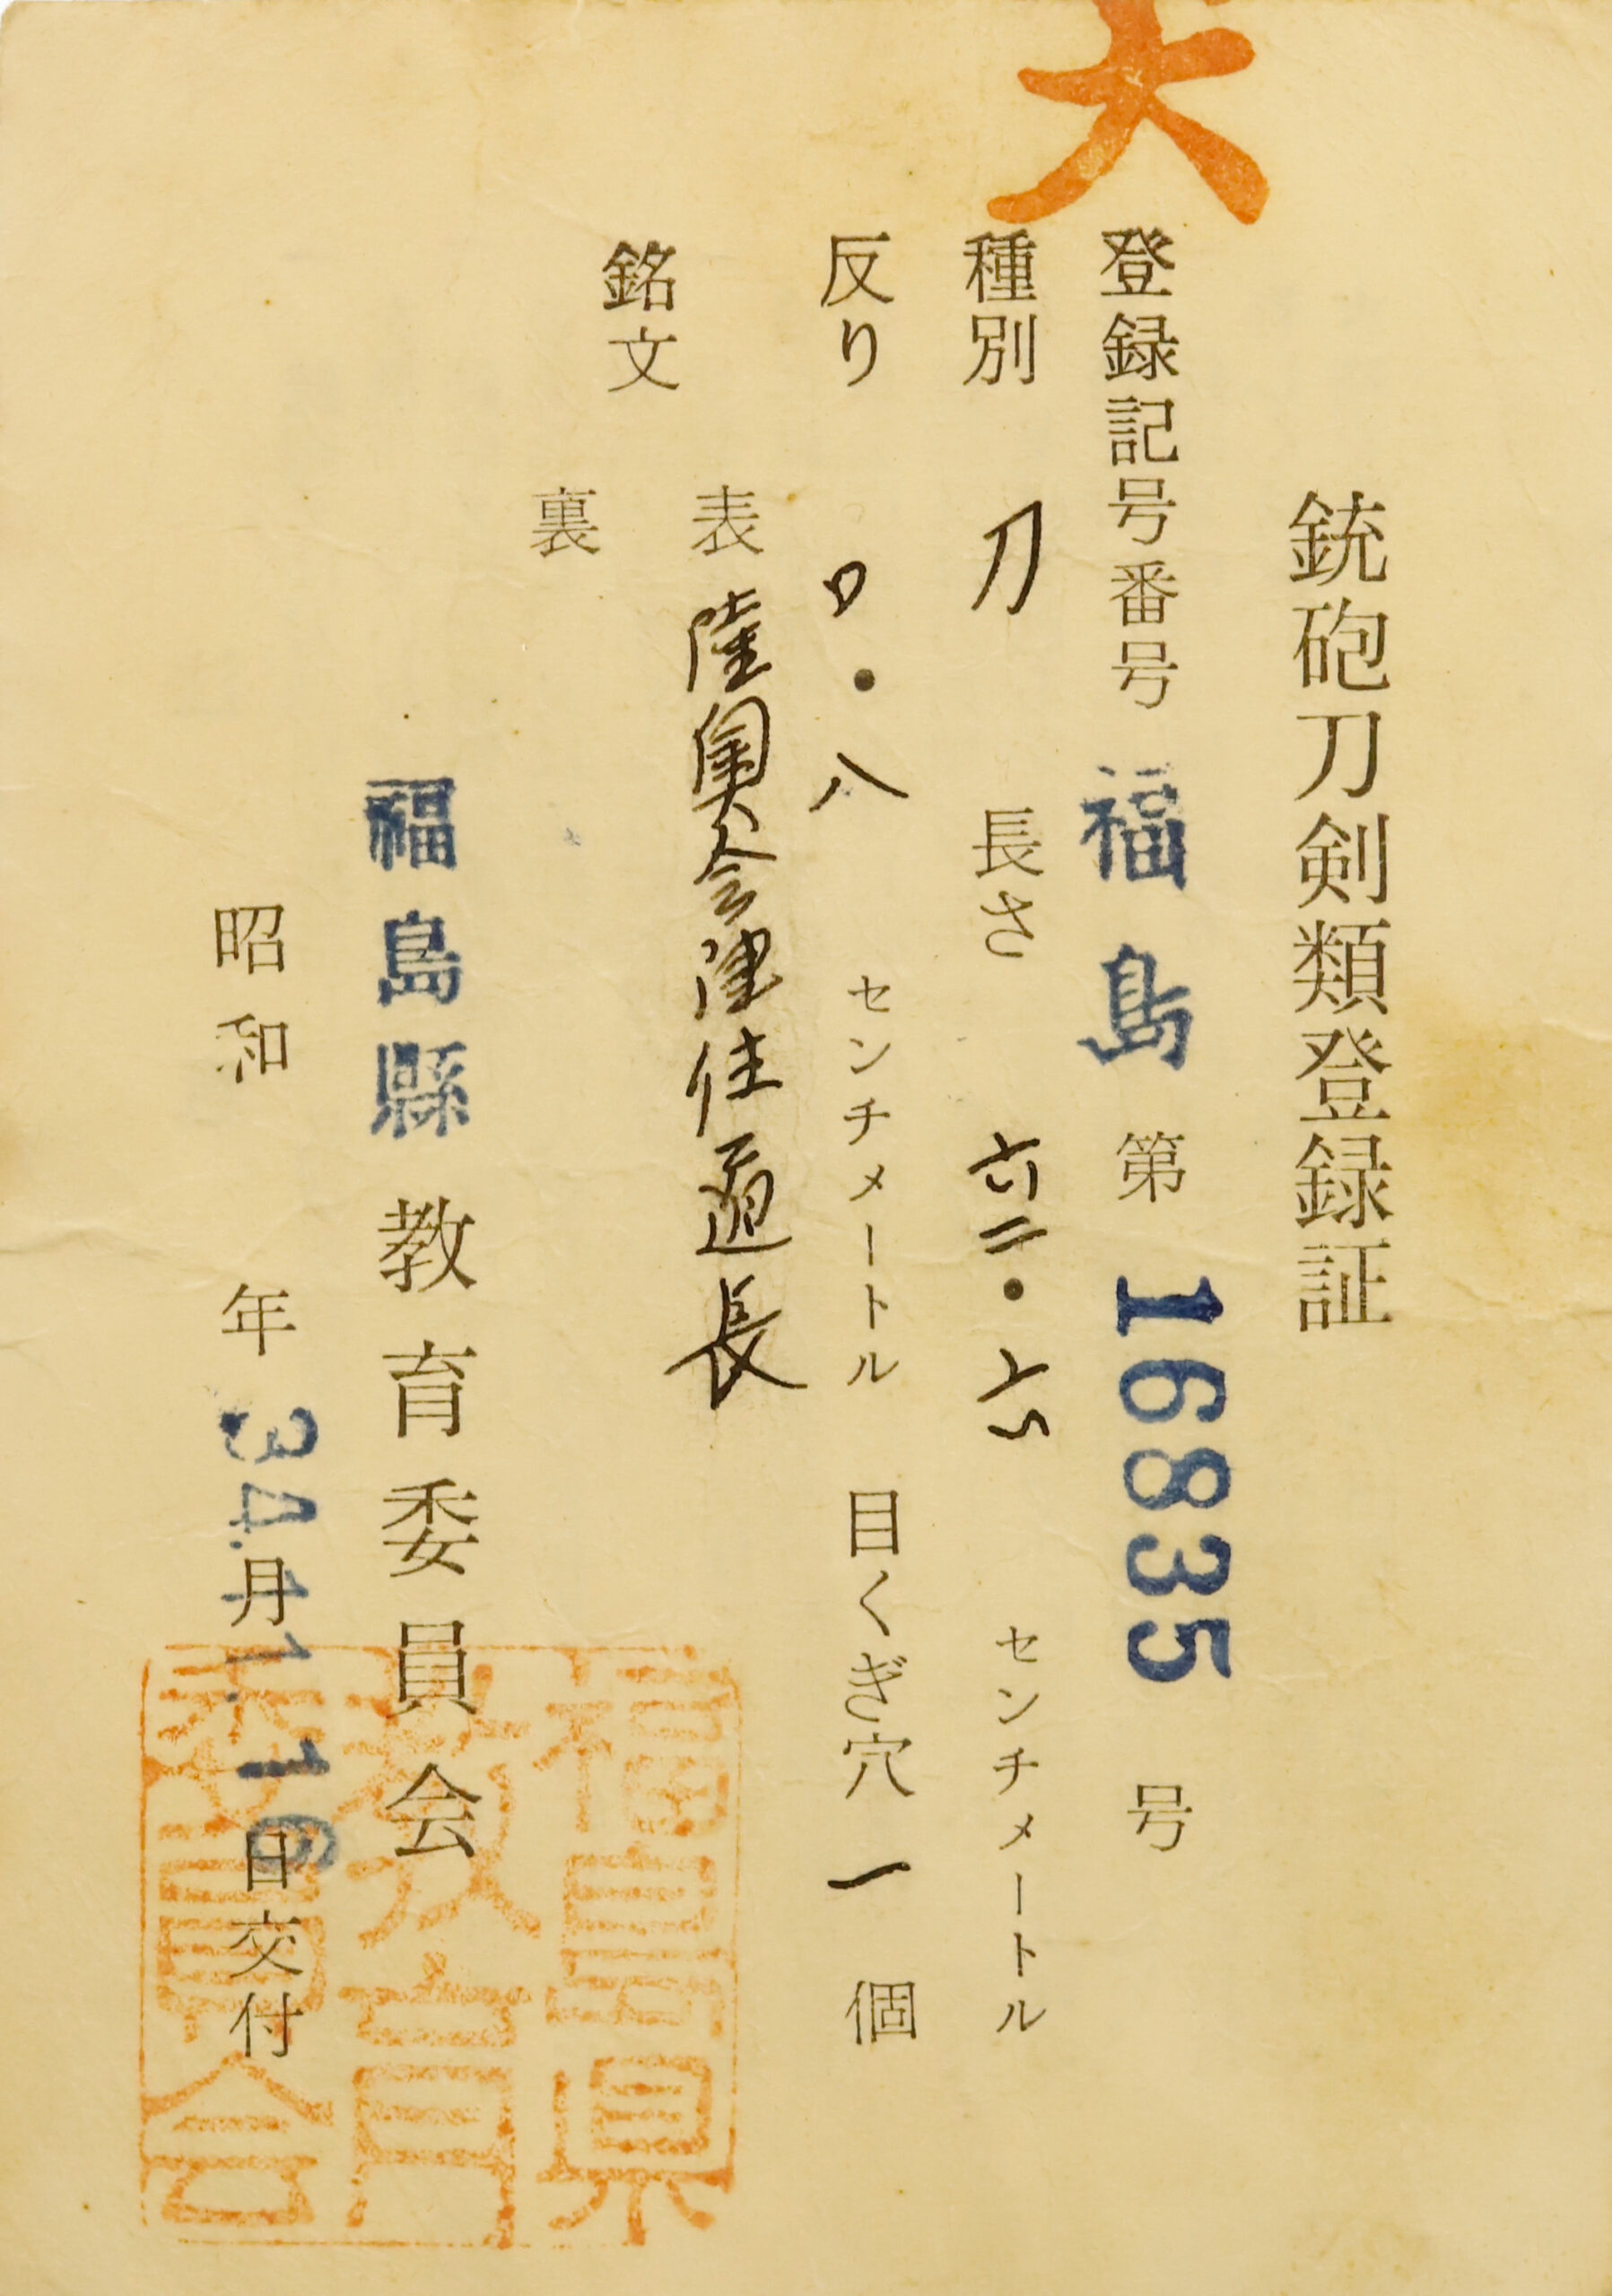 銃砲刀剣類登録証
登録記号番号 福島 第 16835 号
種別 刀 長さ 六二・六 センチメートル
反り 〇・八 センチメートル 目くぎ穴 一 個
銘文 表 陸奥会津住道長
裏
福島縣教育委員会
昭和 年 34.月1.16日交付
福島県
教育
委員会